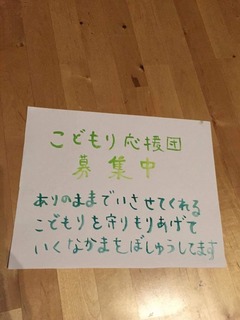 こどもり応援団
募集中
ありのままでいさせてくれる
こどもりを守りもりあげて
いくなかまをぼしゅうしてます